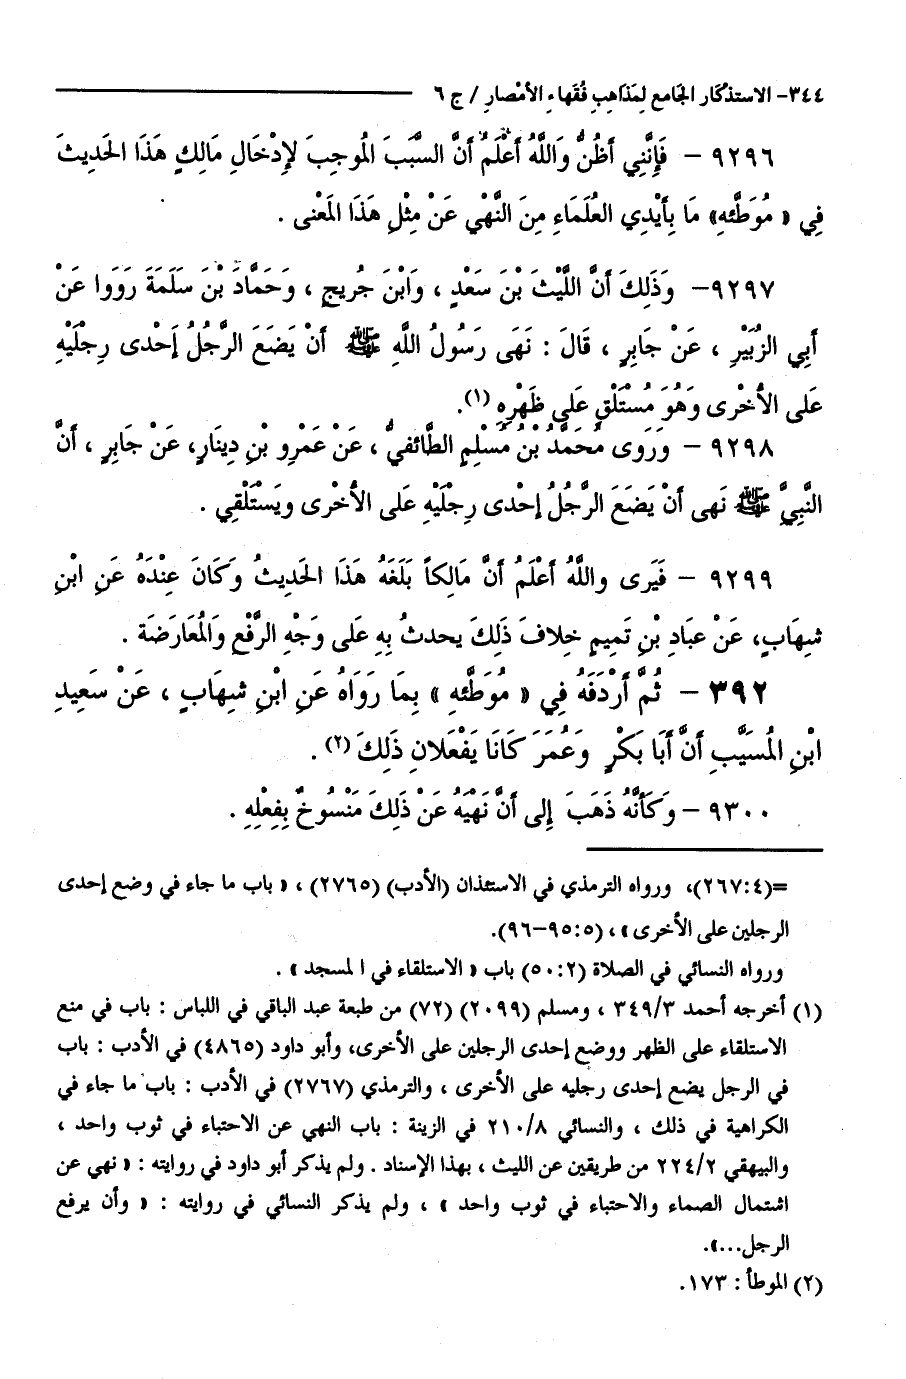 ٣٤٤- الاستذكار الجامع لِمَذاهِبِ فُقَهاءِ الأمْصارِ / ج ٦
٩٢٩٦ – فَإِنَّنِي أَظُنُّ وَاللَّهُ أَعْلَمُ أَنَّ السَّبَبَ المُوجِبَ لإِدْخَالِ مَالِكٍ هَذَا الحَدِيثَ
فِي « مُوَطَّئهِ» مَا بِأَيْدِي العُلَمَاءِ مِنَ النَّهْيِ عَنْ مِثْلِ هَذَا المَعْنى .
٩٢٩٧– وَذَلِكَ أَنَّ اللَّيْثَ بْنَ سَعْدٍ ، وَابْنَ جُرِيجٍ ، وَحَمَّادَ بْنَ سَلَمَةَ رَوَوا عَنْ
أَبِي الزُبَيْرِ ، عَنْ جَابِرٍ ، قَالَ : نَهَى رَسُولُ اللَّهِ ﷺ أَنْ يَضَعَ الرَّجُلُ إَحْدى رِجْلَيْهِ
عَلى الأُخْرى وَهُوَ مُسْتَلْقٍ عَلى ظَهْرِهِ (١).
٩٢٩٨ – وَرَوى مُحَمَّدُ بْنُ مُسْلِمٍ الطَّائفيُّ ، عَنْ عَمْرِو بْنِ دِينَارٍ، عَنْ جَابِرٍ ، أَنَّ
النَّبِيَّ ﷺ نَهى أَنْ يَضَعَ الرَّجُلُ إِحْدى رِجْلَيْهِ عَلى الأُخْرى ويَسْتَلْقِي .
٩٢٩٩ – فَيَرى واللَّهُ أَعْلَمُ أَنَّ مَالِكاً بَلَغَهُ هَذَا الحَدِيثُ وَكَانَ عِنْدَهُ عَنِ ابْنِ
شِهَابٍ، عَنْ عبادِ بْنِ تَمِيمٍ خلافَ ذَلِكَ يحدثُ بِهِ عَلى وَجْهِ الرَّفْعِ وَالمُعَارَضَة .
٣٩٢ – ثُمَّ أَرْدَفَهُ فِي « مُوَطَّئهِ » بِمَا رَوَاهُ عَنِ ابْنِ شِهَابٍ ، عَنْ سَعِيدِ
ابْنِ المُسَيَّبِ أَنَّ أَبَا بَكْرٍ وَعُمَرَ كَانَا يَفْعَلانِ ذَلِكَ (٢) .
٩٣٠٠ – وَكَأَنَّهُ ذَهَبَ إِلى أَنَّ نَهْيَهُ عَنْ ذَلِكَ مَنْسُوخٌ بِفِعْلِهِ .
=(٤:٢٦٧)، ورواه الترمذي في الاستئذان (الأدب) (٢٧٦٥) ، « باب ما جاء في وضع إحدى
الرجلين على الأخرى » ، (٥:٩٥–٩٦).
ورواه النسائي في الصلاة (٢:٥٠) باب « الاستلقاء في ا لمسجد » .
(١) أخرجه أحمد ٣٤٩/٣ ، ومسلم (٢٠٩٩) (٧٢) من طبعة عبد الباقي في اللباس : باب في منع
الاستلقاء على الظهر ووضع إحدى الرجلين على الأخرى، وأبو داود (٤٨٦٥) في الأدب : باب
في الرجل يضع إحدى رجليه على الأخرى ، والترمذي (٢٧٦٧) في الأدب : باب ما جاء في
الكراهية في ذلك ، والنسائي ٢١٠/٨ في الزينة : باب النهي عن الاحتباء في ثوب واحد ،
والبيهقي ٢٢٤/٢ من طريقين عن الليث ، بهذا الإسناد . ولم يذكر أبو داود في روايته : « نهي عن
اشتمال الصماء والاحتباء في ثوب واحد » ، ولم يذكر النسائي في روايته : « وأن يرفع
الرجل...».
(٢) الموطأ : ١٧٣.